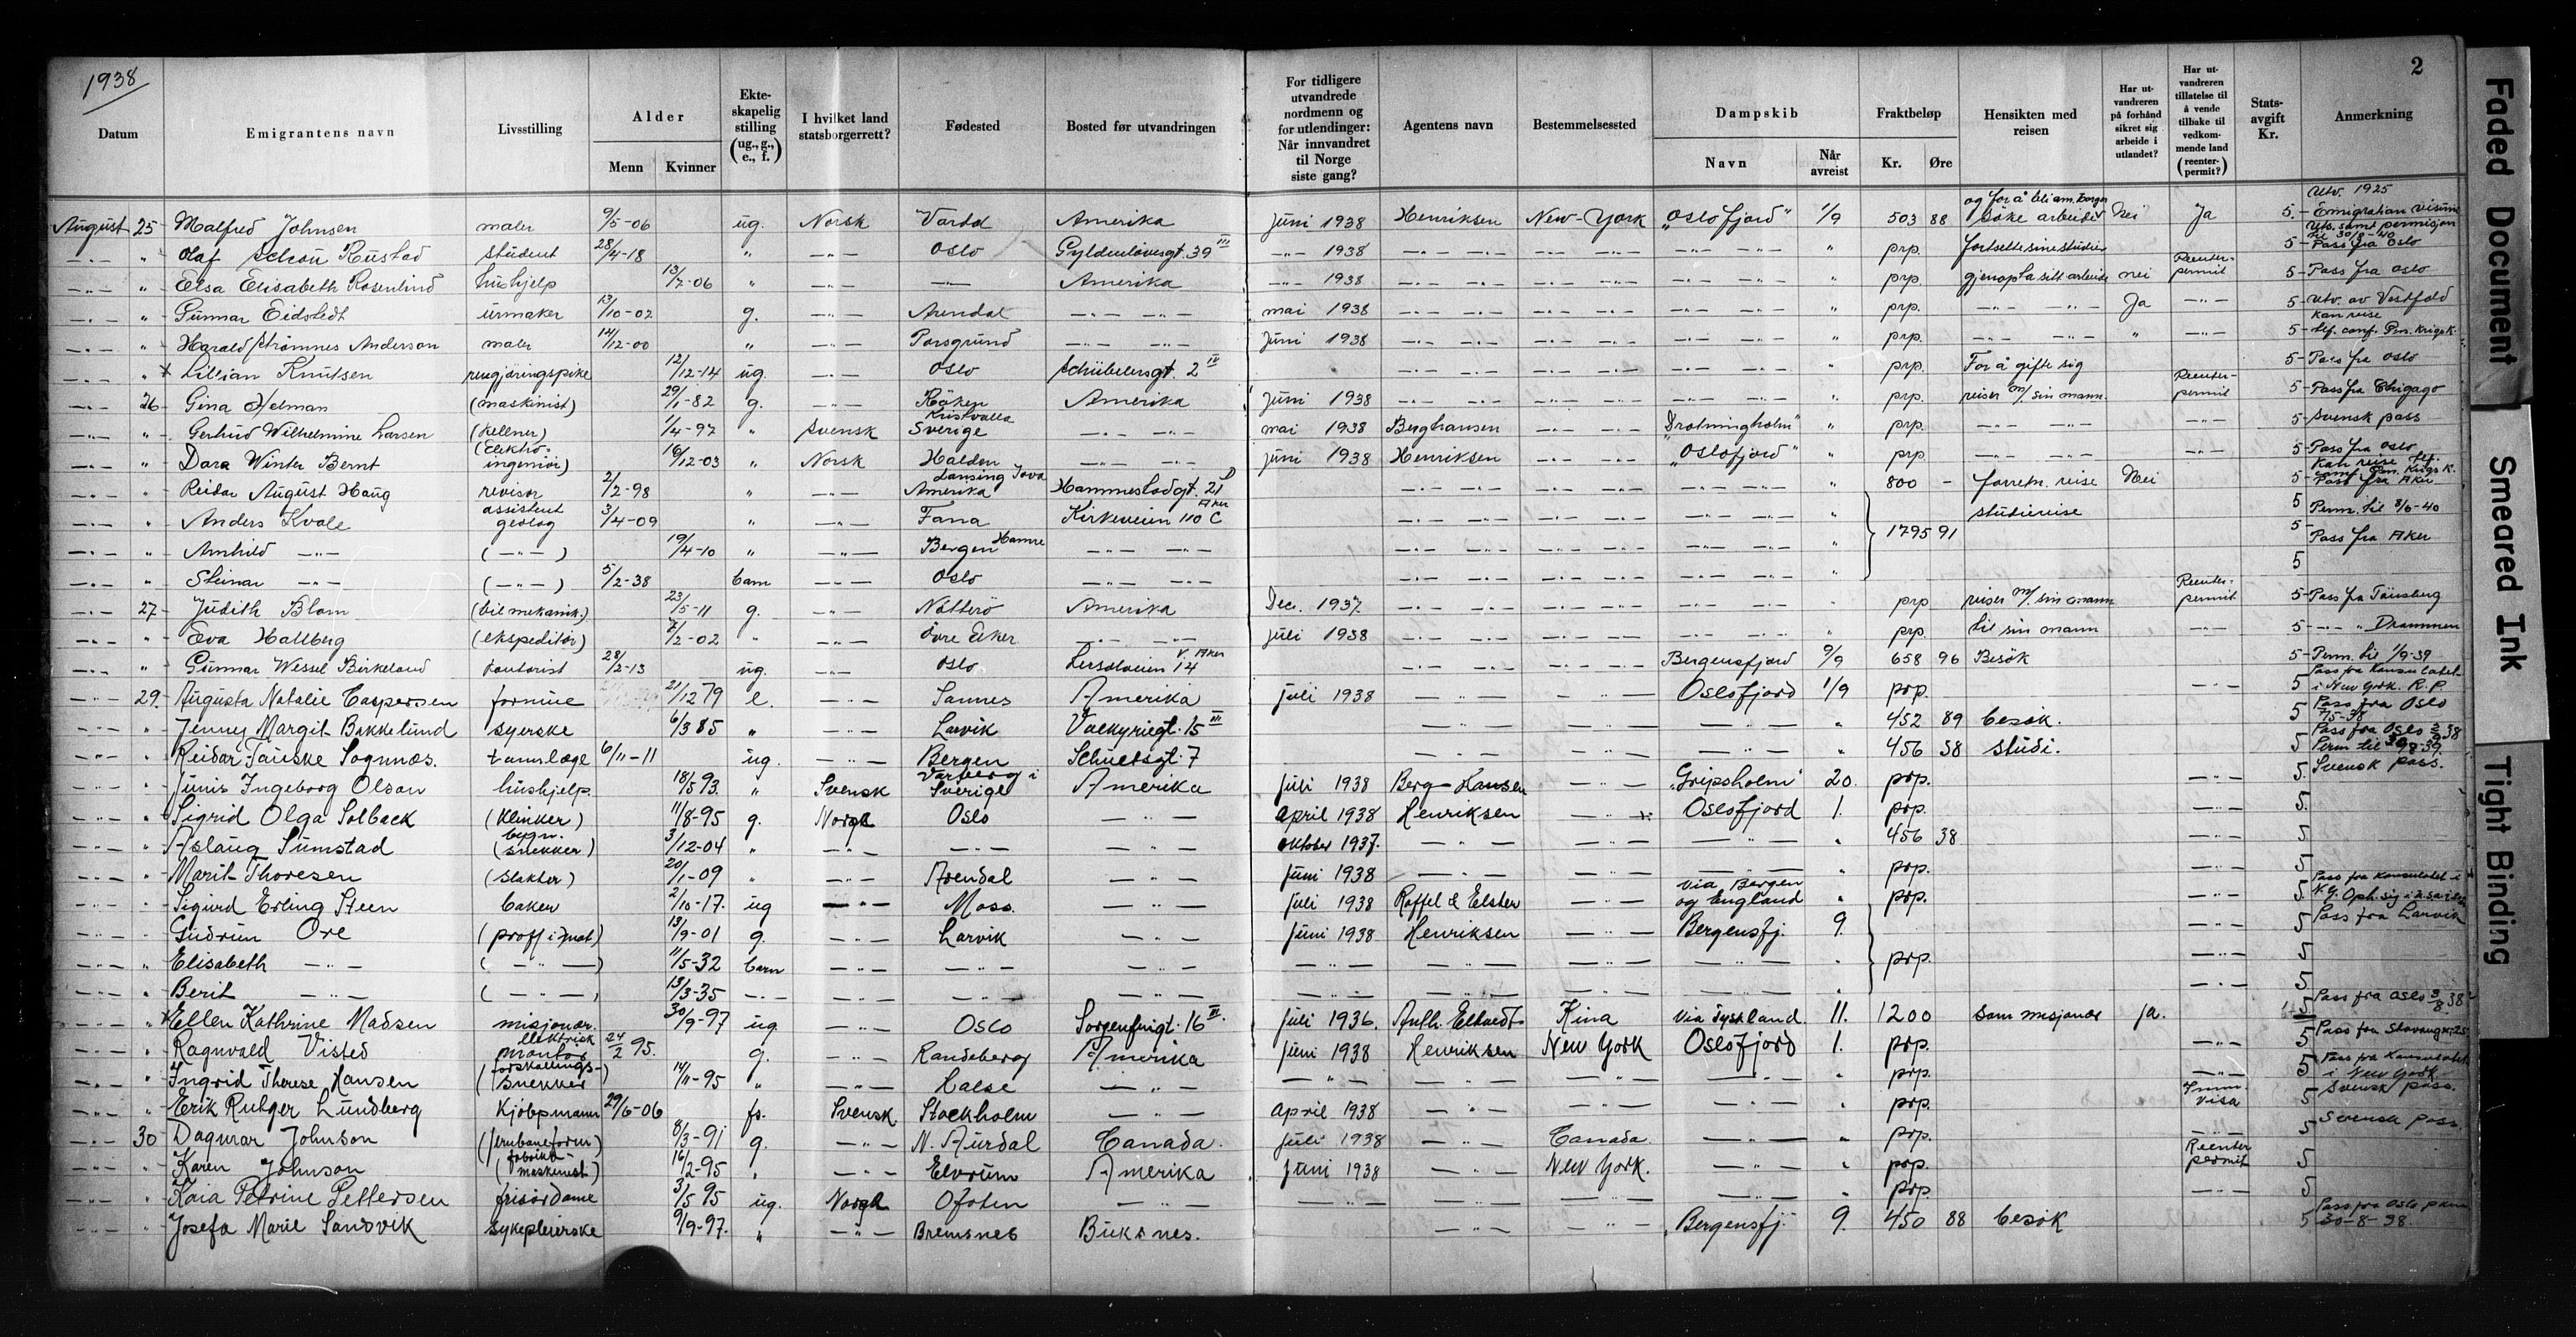 1938
2
Datum | Emigrantens navn | Livsstilling | Alder | Menn | Kvinner | Ekteskapelig stilling (ug., g., e., f.) | I hvilket land statsborgerrett? | Fødested | Bosted før utvandringen | For tidligere utvandrede nordmenn og for utlendinger: Når innvandret til Norge siste gang? | Agentens navn | Bestemmelsessted | Dampskib | Navn | Når avreist | Fraktbeløp | Kr. | Øre | Hensikten med reisen | Har utvandreren på forhånd sikret sig arbeide i utlandet? | Har utvandreren tillatelse til å vende tilbake til vedkommende land (reenterpermit?) | Statsavgift Kr. | Anmerkning
August 25 Malfred Johnsen maler 9/5-06 ug. Norsk Vardø Amerika Juni 1938 Henriksen New-York "Oslofjord" 1/9 503 88 og for å bli am. borger søke arbeide Nei Ja 5.- Utv. 1925 Emigration visum
-"- " Olaf Schou Rustad student 28/4-18 " -"- Oslo Gyldenløvesgt. 39 III -"- 1938 -"- -"- -"- " prp. fortsette sine studier 5- Pass fra Oslo
-"- " Elsa Elisabeth Rosenlind hushjelp 13/7-06 " -"- -"- Amerika -"- 1938 -"- -"- -"- " prp. gjenoppta sitt arbeide nei Reenter-permit 5- Pass fra Oslo
-"- " Gunnar Eidstedt urmaker 13/10-02 g. -"- Arendal -"- mai 1938 -"- -"- -"- " prp. -"- Ja -"- 5- Utv. av Vestfold
-"- " Harald Strømnes Anderson maler 14/12-00 " -"- Porsgrund -"- Juni 1938 -"- -"- -"- " prp. -"- " -"- 5- Kan reise
-"- " x Lillian Knutsen rengjøringspike 12/12-14 ug. -"- Oslo Schübelersgt. 2 IV -"- -"- -"- " prp. For å gifte sig 5- Pass fra Oslo
-"- 26 Gina Helman (maskinist) 29/1-82 g. -"- Røken Amerika Juni 1938 -"- -"- -"- " prp. reiser m/. sin mann Reenter-permit 5- Pass fra Chigago
-"- " Gerhud Wilhelmine Larsen (Kellner) 1/4-97 " Svensk Kristvalla Sverige -"- mai 1938 Berghansen -"- "Drotningholm" " prp. -"- -"- 5- Svensk pass
-"- " Dora Winter Bernt (Elektro-ingeniør) 16/12-03 " Norsk Halden -"- juni 1938 Henriksen -"- "Oslofjord" " prp. -"- -"- 5- Pass fra Oslo
-"- " Reidar August Haug revisor 2/2-98 " -"- Lansing Iova Amerika Hammerstadgt. 21 -"- -"- -"- " 800 - forretn. reise Nei 5- Pass fra Aker
-"- " Anders Kvale assistent geolog 3/4-09 " -"- Fana Kirkeveien 110 C Aker -"- -"- -"- " 1795 91 studiereise 5 Perm. til 8/6-40
-"- " Arnhild -"- (-"-) 19/4-10 " -"- Bergen Hamre -"- -"- -"- -"- " 5- Pass fra Aker
-"- " Steinar -"- (-"-) 5/2-38 barn -"- Oslo -"- -"- -"- -"- " 5
-"- 27 Judith Blom (bilmekanik.) 23/5-11 g. -"- Nøtterø Amerika Dec. 1937 -"- -"- -"- " prp reiser m/. sin mann Reenter-permit 5- Pass fra Tønsberg
-"- " Eva Hallberg (ekspeditør) 7/2-02 " -"- Øvre Eiker -"- juli 1938 -"- -"- -"- " prp. til sin mann 5- -"- " Drammen
-"- " Gunnar Wessel Birkeland kontorist 28/2-13 ug. -"- Oslo Lersolveien 14 V. Aker -"- -"- Bergensfjord 9/9 658 96 Besøk 5- Perm. til 1/9-39
-"- 29. Augusta Natalie Caspersen formue 21/12 79 e. -"- Sannes Amerika juli 1938 -"- -"- Oslofjord 1/9 prp. -"- 5 Pass fra Konsulatet i New York. R.P.
-"- " Jenny Margit Bakkelund syerske 6/3 85 " -"- Larvik Valkyriegt. 15 III -"- -"- -"- " 452 89 besøk. 5 Pass fra Oslo 7/5-38
-"- " Reidar Tauske Sognnæs. tannlæge 6/11-11 ug. -"- Bergen Schuetsgt. 7 -"- -"- -"- " 456 38 studi. 5 Pass fra Oslo
-"- " Junis Ingeborg Olson hushjelp. 18/5 93. " Svensk Varberg i Sverige Amerika juli 1938 Berg-Hansen -"- "Gripsholm" 20. prp. -"- 5. Svensk pass.
-"- " Sigrid Olga Solback (Klinker) 11/8-95 g. Norge Oslo -"- april 1938 Henriksen -"- Oslofjord 1. prp. -"- 5.
-"- " Aslaug Sumstad (bygn. snekker) 3/12-04 " -"- -"- -"- oktober 1937. -"- -"- -"- " 456 38. -"- 5
-"- " Marit Thoresen (slakter) 20/1-09 " -"- Arendal -"- Juni 1938 -"- -"- -"- " prp. -"- 5
-"- " Sigurd Erling Steen baker 2/10-17. ug -"- Moss. -"- juli 1938 Raffel & Elster -"- via Bergen og England " prp. -"- 5. Pass fra Konsulatet i N.Y.
-"- " Gudrun Ore (proff i mat) 13/9-01 g. -"- Larvik -"- juni 1938 Henriksen -"- Bergensfj. 9. -"- 5 Pass fra Larvik
-"- " Elisabeth -"- (-"-) 11/5-32 barn -"- -"- -"- -"- -"- -"- -"- " prp. -"- 5
-"- " Berit -"- (-"-) 13/3-35 -"- -"- -"- -"- -"- -"- -"- -"- " -"- 5
-"- " x Ellen Kathrine Madsen misjonær. 30/9-97 ug. -"- Oslo Sorgenfrigt. 16 III. juli 1936. Anth. Eltvedt Kina via Tyskland 11. 1200 Som misjonær ja. 5 Pass fra Oslo 3/8 38
-"- " Ragnvald Visted elektrisk montør 24/2 95. g. -"- Randaberg Amerika juni 1938 Henriksen New York Oslofjord 1. prp. -"- 5 Pass fra Stavanger
-"- " Ingrid Therese Hansen (forskallings-snekker) 14/11-95 " -"- Halse -"- -"- -"- -"- -"- " prp. -"- 5 Pass fra Konsulatet i New York
-"- " Erik Rutger Lundberg Kjøbpmann 29/6-06 fr. Svensk Stockholm -"- April 1938 -"- -"- -"- " prp. Imm. visa 5 Svensk pass.
-"- 30 Dagmar Johnson 8/3-91 g. -"- N. Aurdal Canada. juli 1938 -"- Canada -"- " prp. -"- 5 Svensk pass.
-"- " Karen Johnson (fabrikk-maskinist) 16/2-95 " -"- Elvrum Amerika juni 1938 -"- New York. -"- " prp. Reenter permit 5
-"- " Kaia Petrine Pettersen frisørdame 3/5 95 ug. Norge Ofoten -"- -"- -"- -"- -"- " prp. -"- 5
-"- " Josefa Marie Sandvik sykepleierske 9/9-97. " -"- Bremsnes Buksnes. -"- -"- Bergensfj. 9. 450 88 besøk 5 Pass fra Oslo 30-8-38.
Faded Document
Smeared Ink
Tight Binding